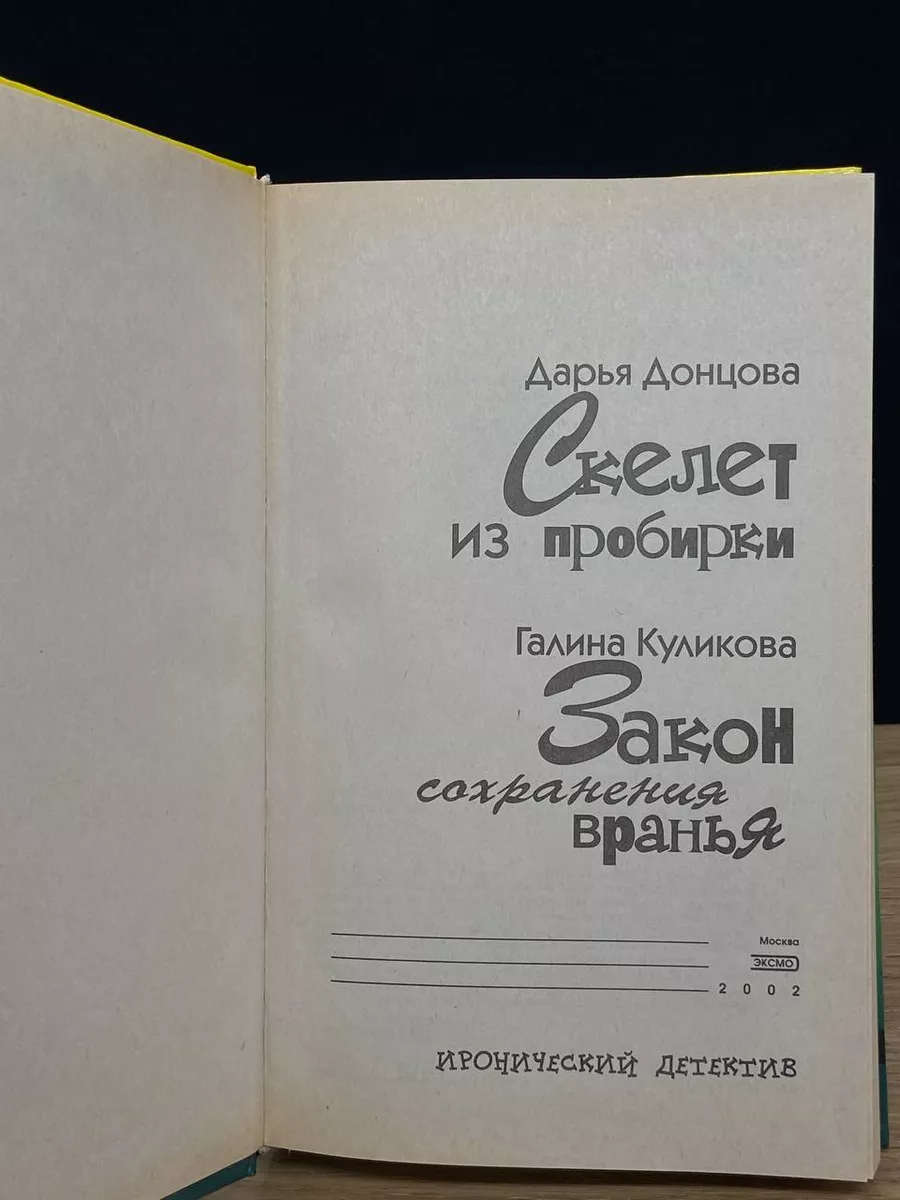 Дарья Донцова
Скелет
из пробирки
Галина Куликова
Закон
сохранения
вранья
Москва
ЭКСМО
2002
ИРОНИЧЕСКИЙ ДЕТЕКТИВ